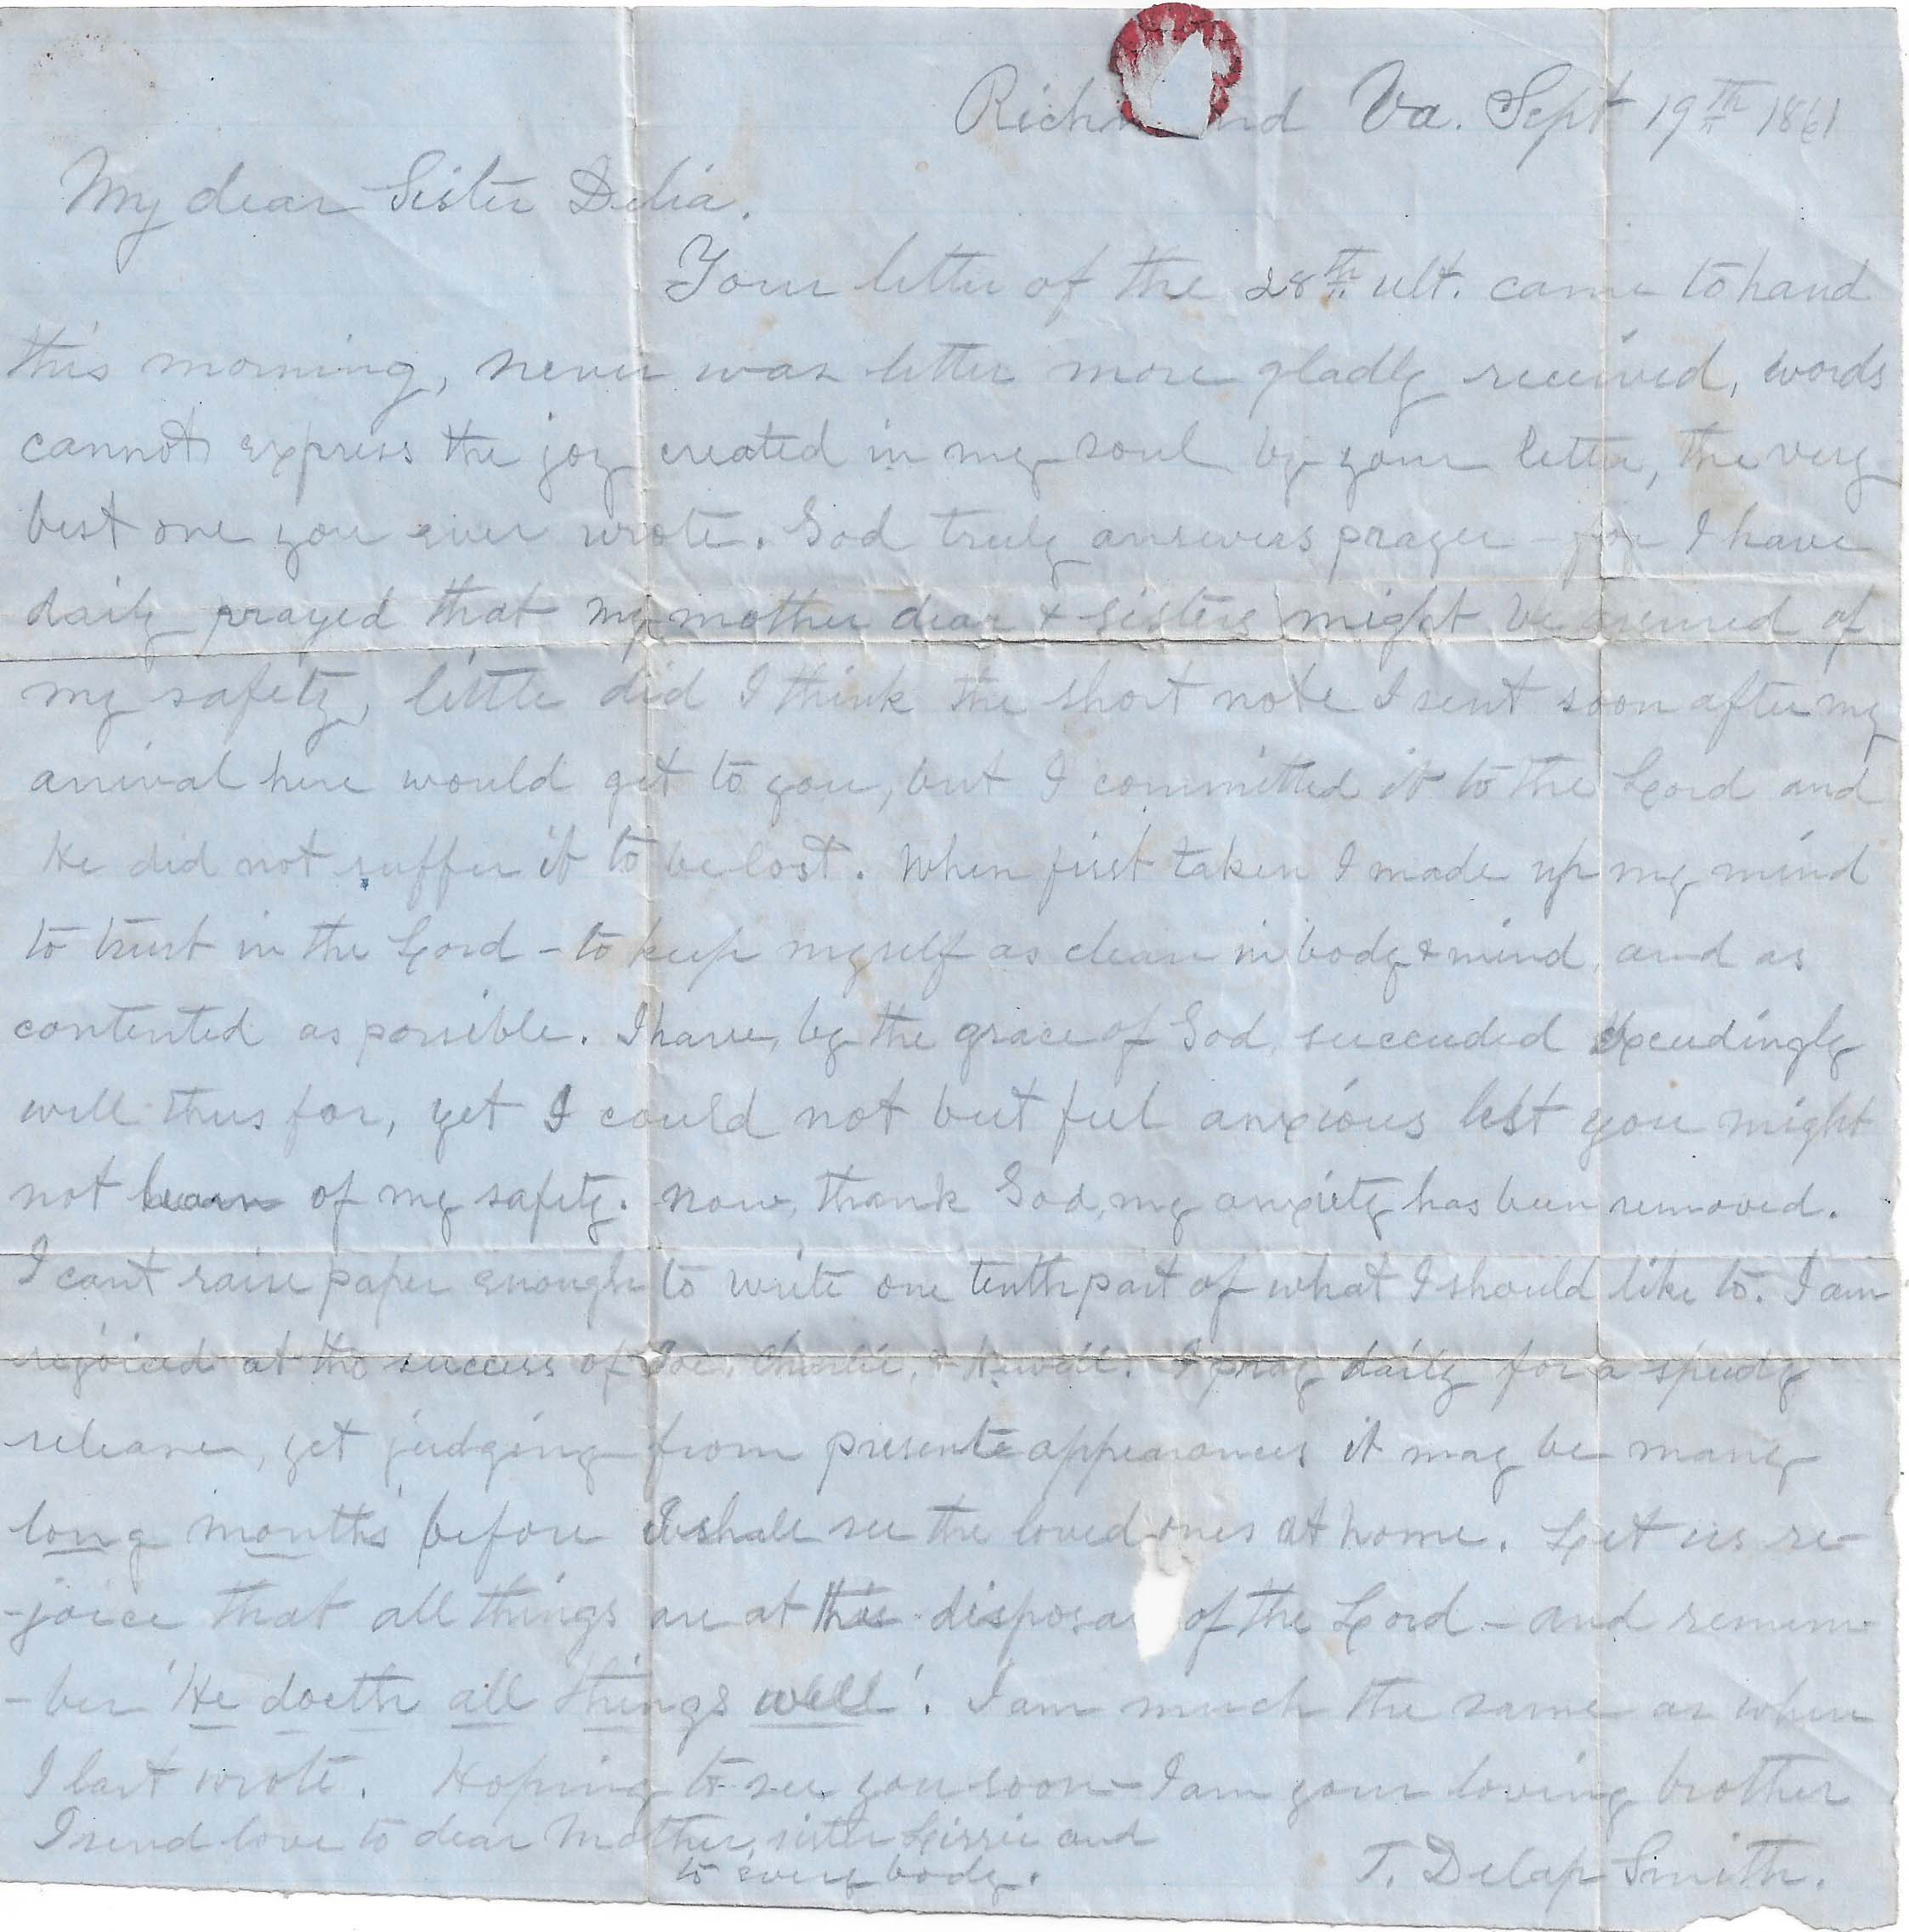 Richmond Va. Sept 19th 1861
My dear Sister Delia.
Your letter of the 28th ult. came to hand
this morning, never was letter more gladly received, words
cannot express the joy created in my soul by your letter, the very
best one you ever wrote. God truly answers prayer - for I have
daily prayed that my mother dear & sisters might be assured of
my safety, little did I think the short note I sent soon after my
arrival here would get to you, but I committed it to the Lord and
He did not suffer it to be lost. When first taken I made up my mind
to trust in the Lord - to keep myself as clean in body & mind, and as
contented as possible. I have, by the grace of God, succeeded exceedingly
well thus far, yet I could not but feel anxious lest you might
not learn of my safety. Now, thank God, my anxiety has been removed.
I cant raise paper enough to write one tenth part of what I should like to. I am
rejoiced at the success of Joe, Charlie, & . I pray daily for a speedy
release, yet judging from present appearances it may be many
long months before I shall see the loved ones at home. Let us re-
-joice that all things are at the disposal of the Lord - and remem-
-ber 'He doeth all things well'. I am much the same as when
I last wrote. Hoping to see you soon - I am your loving brother
I send love to dear Mother, sister Lizzie and
to every body.
T. Delap Smith.